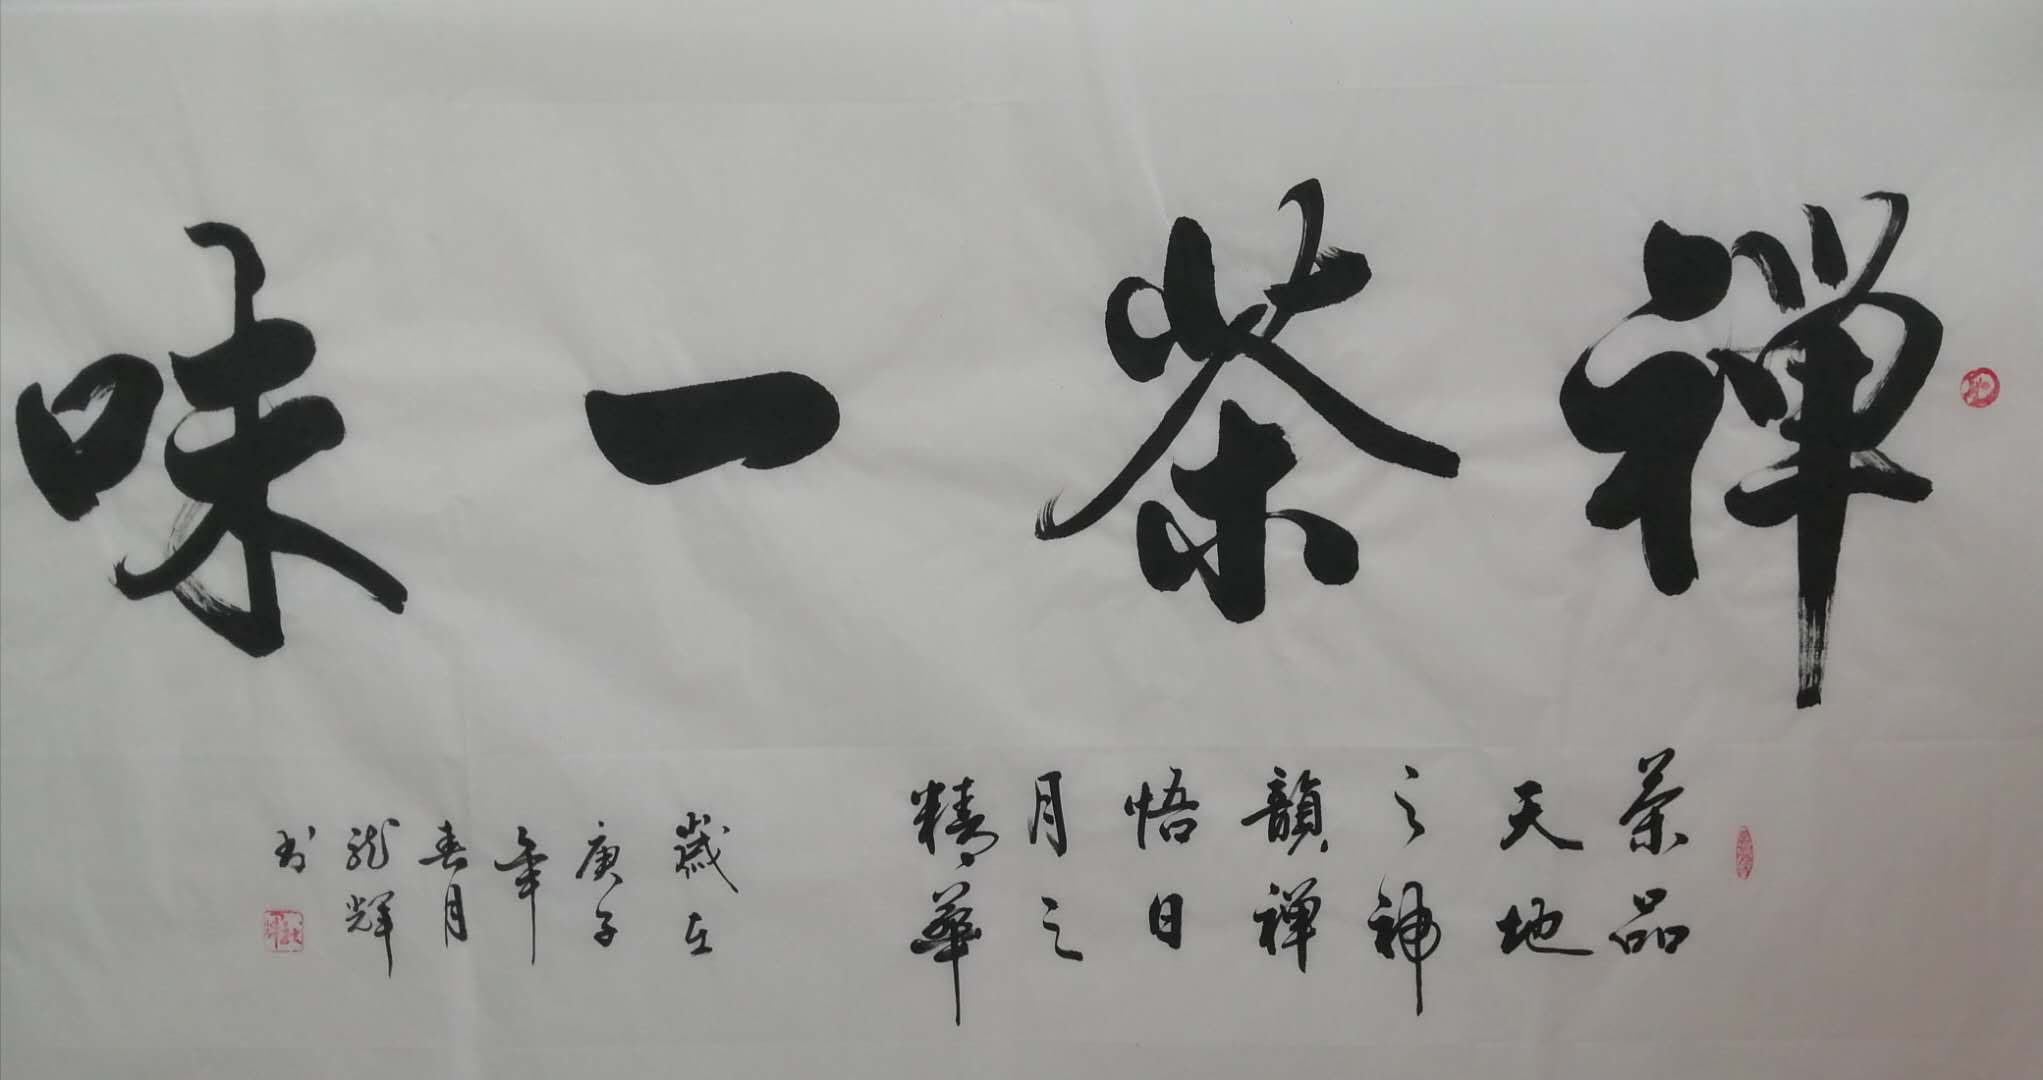 禅茶一味
茶品
天地
之神
韻禅
悟日
月之
精華
歲在
庚子
年
春月
龙辉
书